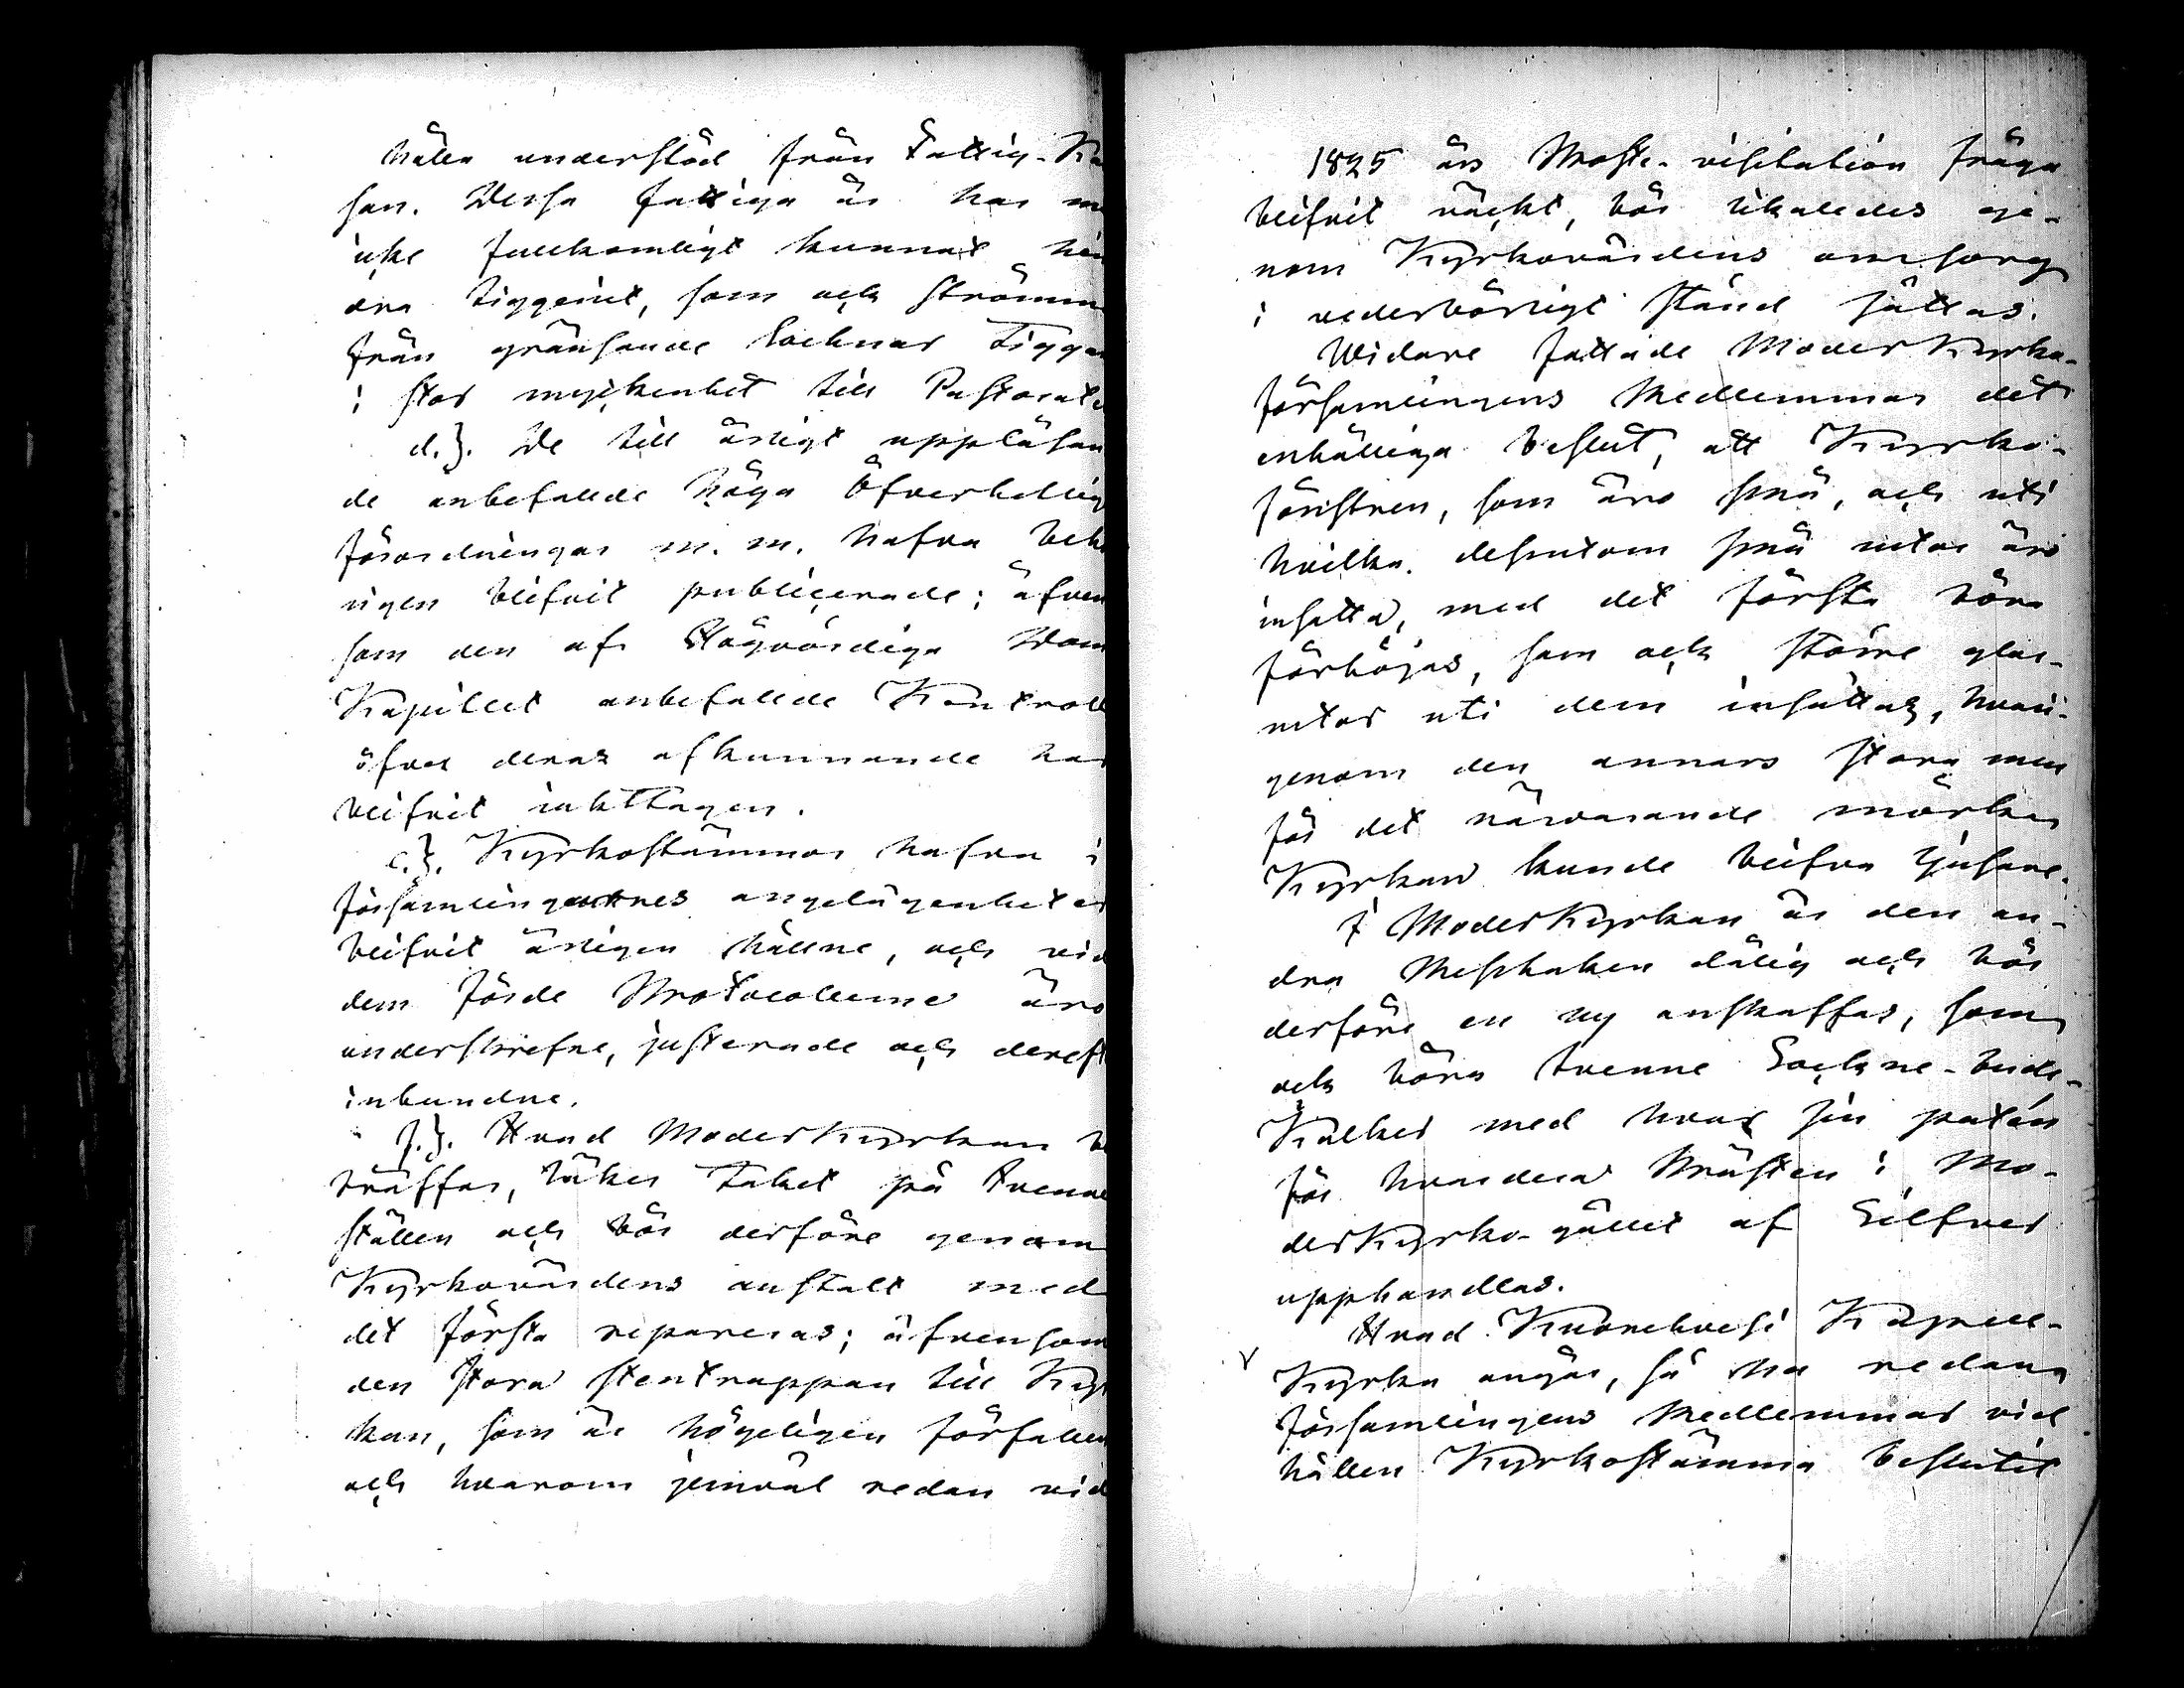 hålla understöd från Fattig-Ka
san. Dessa fattiga år har m
icke fullkomligt kunnat hin
dra tiggeriet, som och strömm
från gränsande Socknar Tigga
i stor myckenhet till Pastorate
d.). De till årligt uppläsan
de anbefallde höga Öfverhetlig
förordningar m. m. hafva beh
rigen blifvit publicerade; äfven
som den af Högvördiga Dom
Kapitlet anbefallde Kontroll
öfver deras afkunnande har
blifvit iakttagen.
e.). Kyrkostämmor hafva i
församlingarnes angelägenheter
blifvit årligen hållne, och vid
dem förde Protocollerne äro
underskrefne, justerade och dereft
inbundne.
f.). Hvad Moderkyrkan b
träffar, läker Taket på tvenne
ställen och bör derföre genom
Kyrkovärdens anstalt med
det första repareras; äfvensom
den stora stentrappan till Kyr
kan, som är högeligen förfallen
och hvarom jemväl redan vid
1825 års Prosts-visitation fråga
blifvit väckt, bör likaledes ge-
nom Kyrkovärdens omsorg
i vederbörligt stånd sättas.
Vidare fattade Moderkyrko-
församlingens Medlemmar det
enhälliga beslut, att Kyrko-
fönstren, som äro små, och uti
hvilka dessutom små rutor äro
insatta, med det första böra
förhöjas, som och större glas-
rutor uti dem insättas, hvari-
genom den annars stora men
för det närvarande mörka
Kyrkan kunde blifva ljusare.
I Moderkyrkan är den an-
dra Messhaken dålig och bör
derföre en ny anskaffas, som
och böra tvenne Sockne-buds-
Kalkar med hvar sin patén
för hvardera Prästen i Mo-
derkyrko-gället af Silfver
upphandlas.
Hvad Kuorehvesi Kapell-
Kyrka angår, så ha redan
församlingens Medlemmar vid
hållen Kyrkostämma beslutit